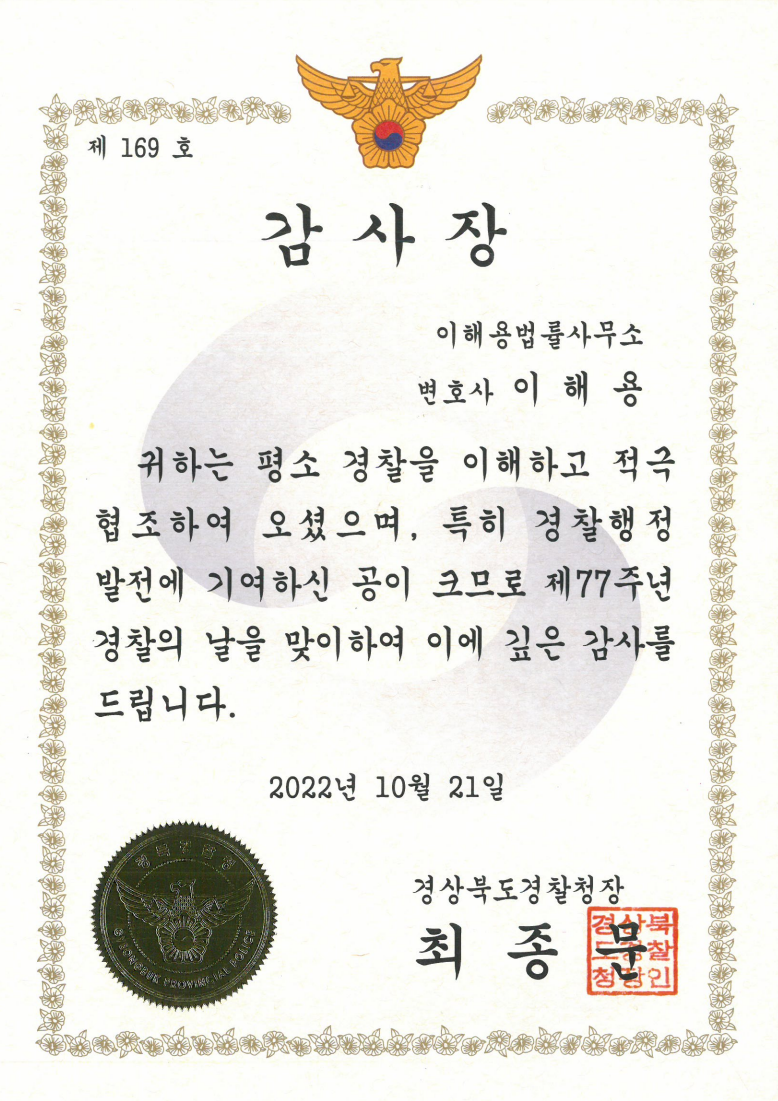 제 169 호
감 사 장
이해용법률사무소
변호사 이 해 용
귀하는 평소 경찰을 이해하고 적극
협조하여 오셨으며, 특히 경찰행정
발전에 기여하신 공이 크므로 제77주년
경찰의 날을 맞이하여 이에 깊은 감사를
드립니다.
2022년 10월 21일
경북경찰청
GYEONGBUK PROVINCIAL POLICE
경상북도경찰청장
최 종 문
경상북
도경찰
청장인